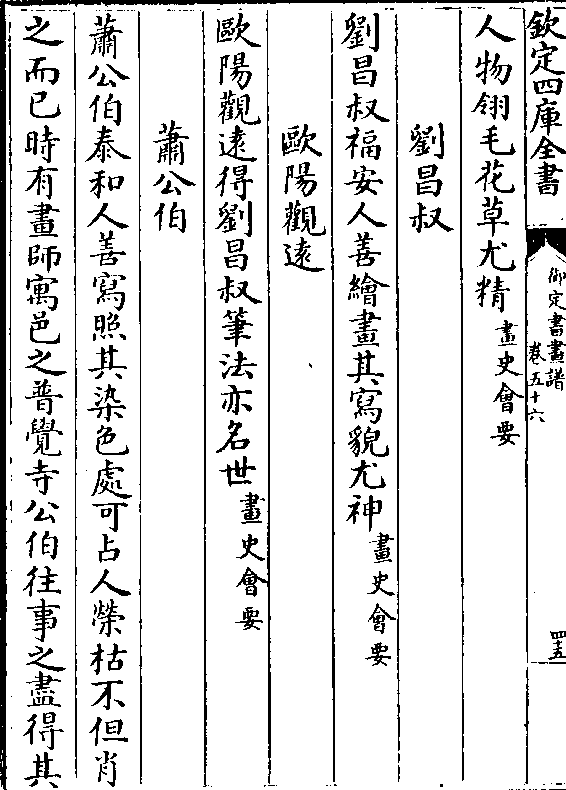 欽定四庫全書
御定書畫譜
卷五十六
四十五
人物翎毛花草尤精畫史會要
劉昌叔
劉昌叔福安人善繪畫其寫貌尤神畫史會要
歐陽觀遠
歐陽觀遠得劉昌叔筆法亦名世畫史會要
蕭公伯
蕭公伯泰和人善寫照其染色處可占人榮枯不但肖
之而已時有畫師寓邑之普覺寺公伯往事之盡得其